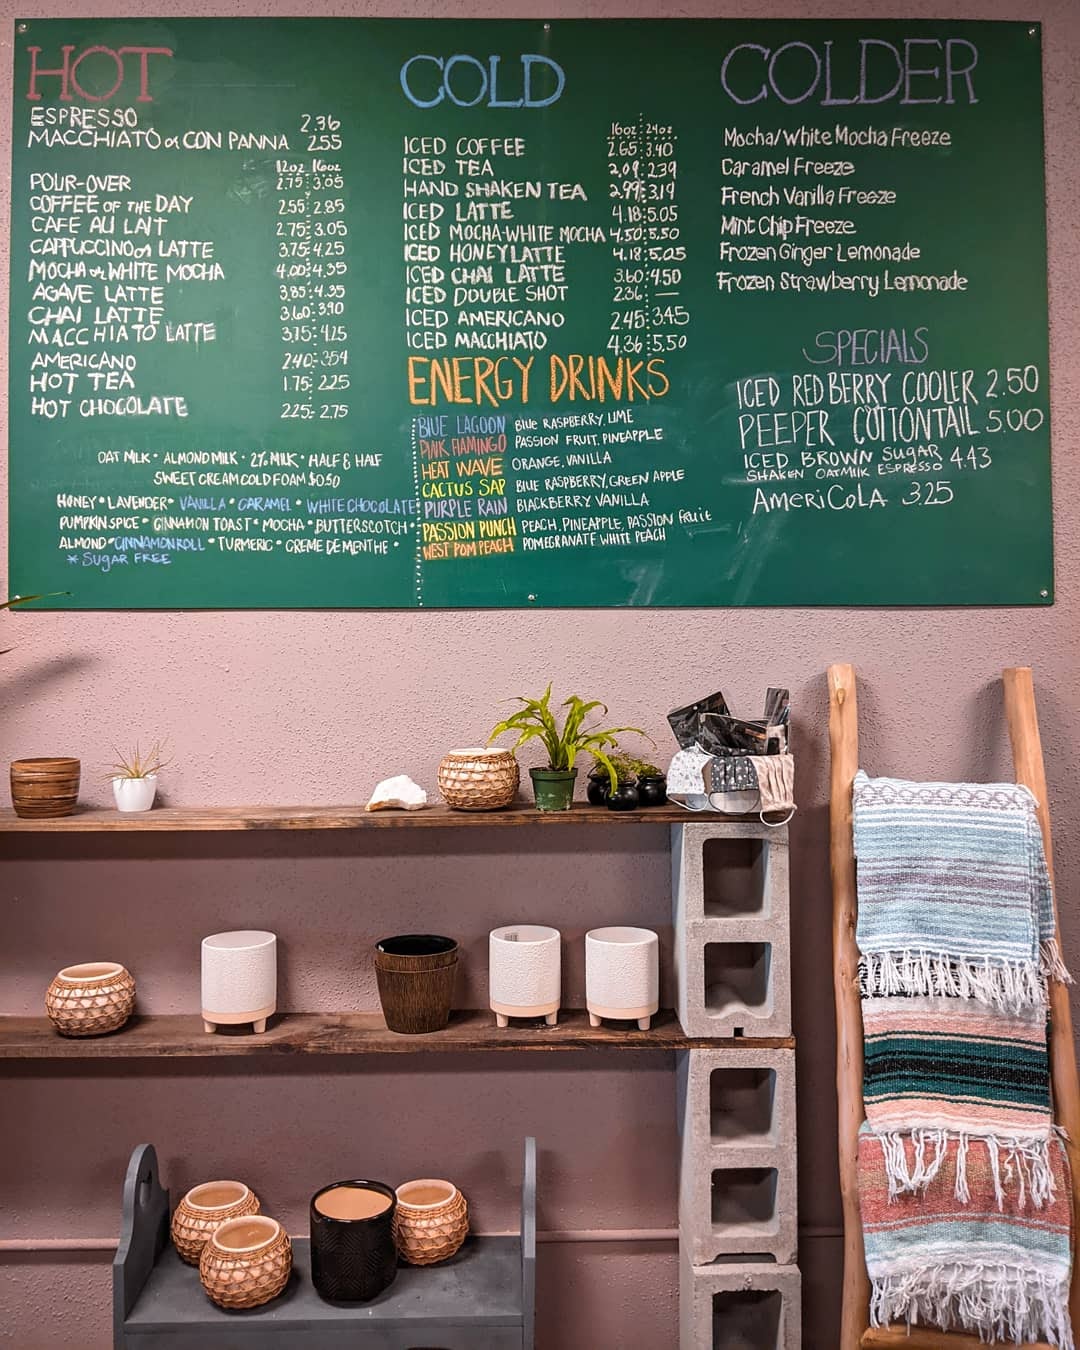 HOT
ESPRESSO 2.36
MACCHIATO or CON PANNA 2.55
12oz 16oz
POUR-OVER 2.75 3.05
COFFEE OF THE DAY 2.55 2.85
CAFE AU LAIT 2.75 3.05
CAPPUCCINO or LATTE 3.75 4.25
MOCHA or WHITE MOCHA 4.00 4.35
AGAVE LATTE 3.85 4.35
CHAI LATTE 3.60 3.90
MACCHIATO LATTE 3.75 4.25
AMERICANO 2.40 3.54
HOT TEA 1.75 2.25
HOT CHOCOLATE 2.25 2.75
OAT MILK • ALMOND MILK • 2% MILK • HALF & HALF
SWEET CREAM COLD FOAM $0.50
HONEY • LAVENDER • VANILLA • CARAMEL • WHITE CHOCOLATE
PUMPKIN SPICE • CINNAMON TOAST • MOCHA • BUTTERSCOTCH •
ALMOND • CINNAMON ROLL • TURMERIC • CREME DE MENTHE •
* SUGAR FREE
COLD
16oz 24oz
ICED COFFEE 2.65 3.40
ICED TEA 2.09 2.39
HAND SHAKEN TEA 2.99 3.19
ICED LATTE 4.18 5.05
ICED MOCHA-WHITE MOCHA 4.50 5.50
ICED HONEY LATTE 4.18 5.05
ICED CHAI LATTE 3.60 4.50
ICED DOUBLE SHOT 2.36 —
ICED AMERICANO 2.45 3.45
ICED MACCHIATO 4.36 5.50
ENERGY DRINKS
BLUE LAGOON BLUE RASPBERRY, LIME
PINK FLAMINGO PASSION FRUIT, PINEAPPLE
HEAT WAVE ORANGE, VANILLA
CACTUS SAP BLUE RASPBERRY, GREEN APPLE
PURPLE RAIN BLACKBERRY VANILLA
PASSION PUNCH PEACH, PINEAPPLE, PASSION fruit
WEST POM PEACH POMEGRANATE WHITE PEACH
COLDER
Mocha/White Mocha Freeze
Caramel Freeze
French Vanilla Freeze
Mint Chip Freeze
Frozen Ginger Lemonade
Frozen Strawberry Lemonade
SPECIALS
ICED RED BERRY COOLER 2.50
PEEPER COTTONTAIL 5.00
ICED BROWN SUGAR
SHAKEN OATMILK ESPRESSO 4.43
AMERiCOLA 3.25